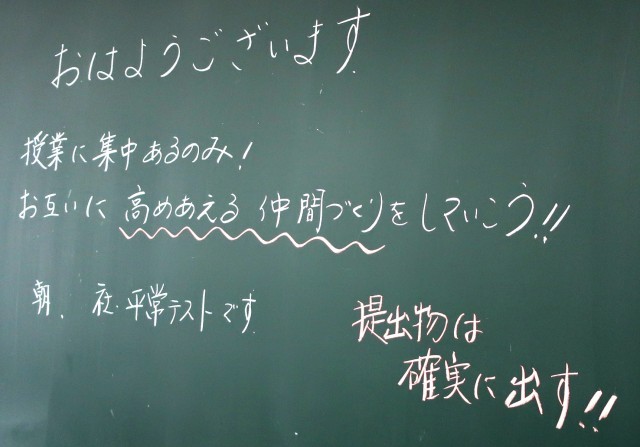 おはようございます
授業に集中あるのみ!
お互いに高めあえる仲間づくりをしていこう!!
朝、社・平常テストです
提出物は
確実に出す!!